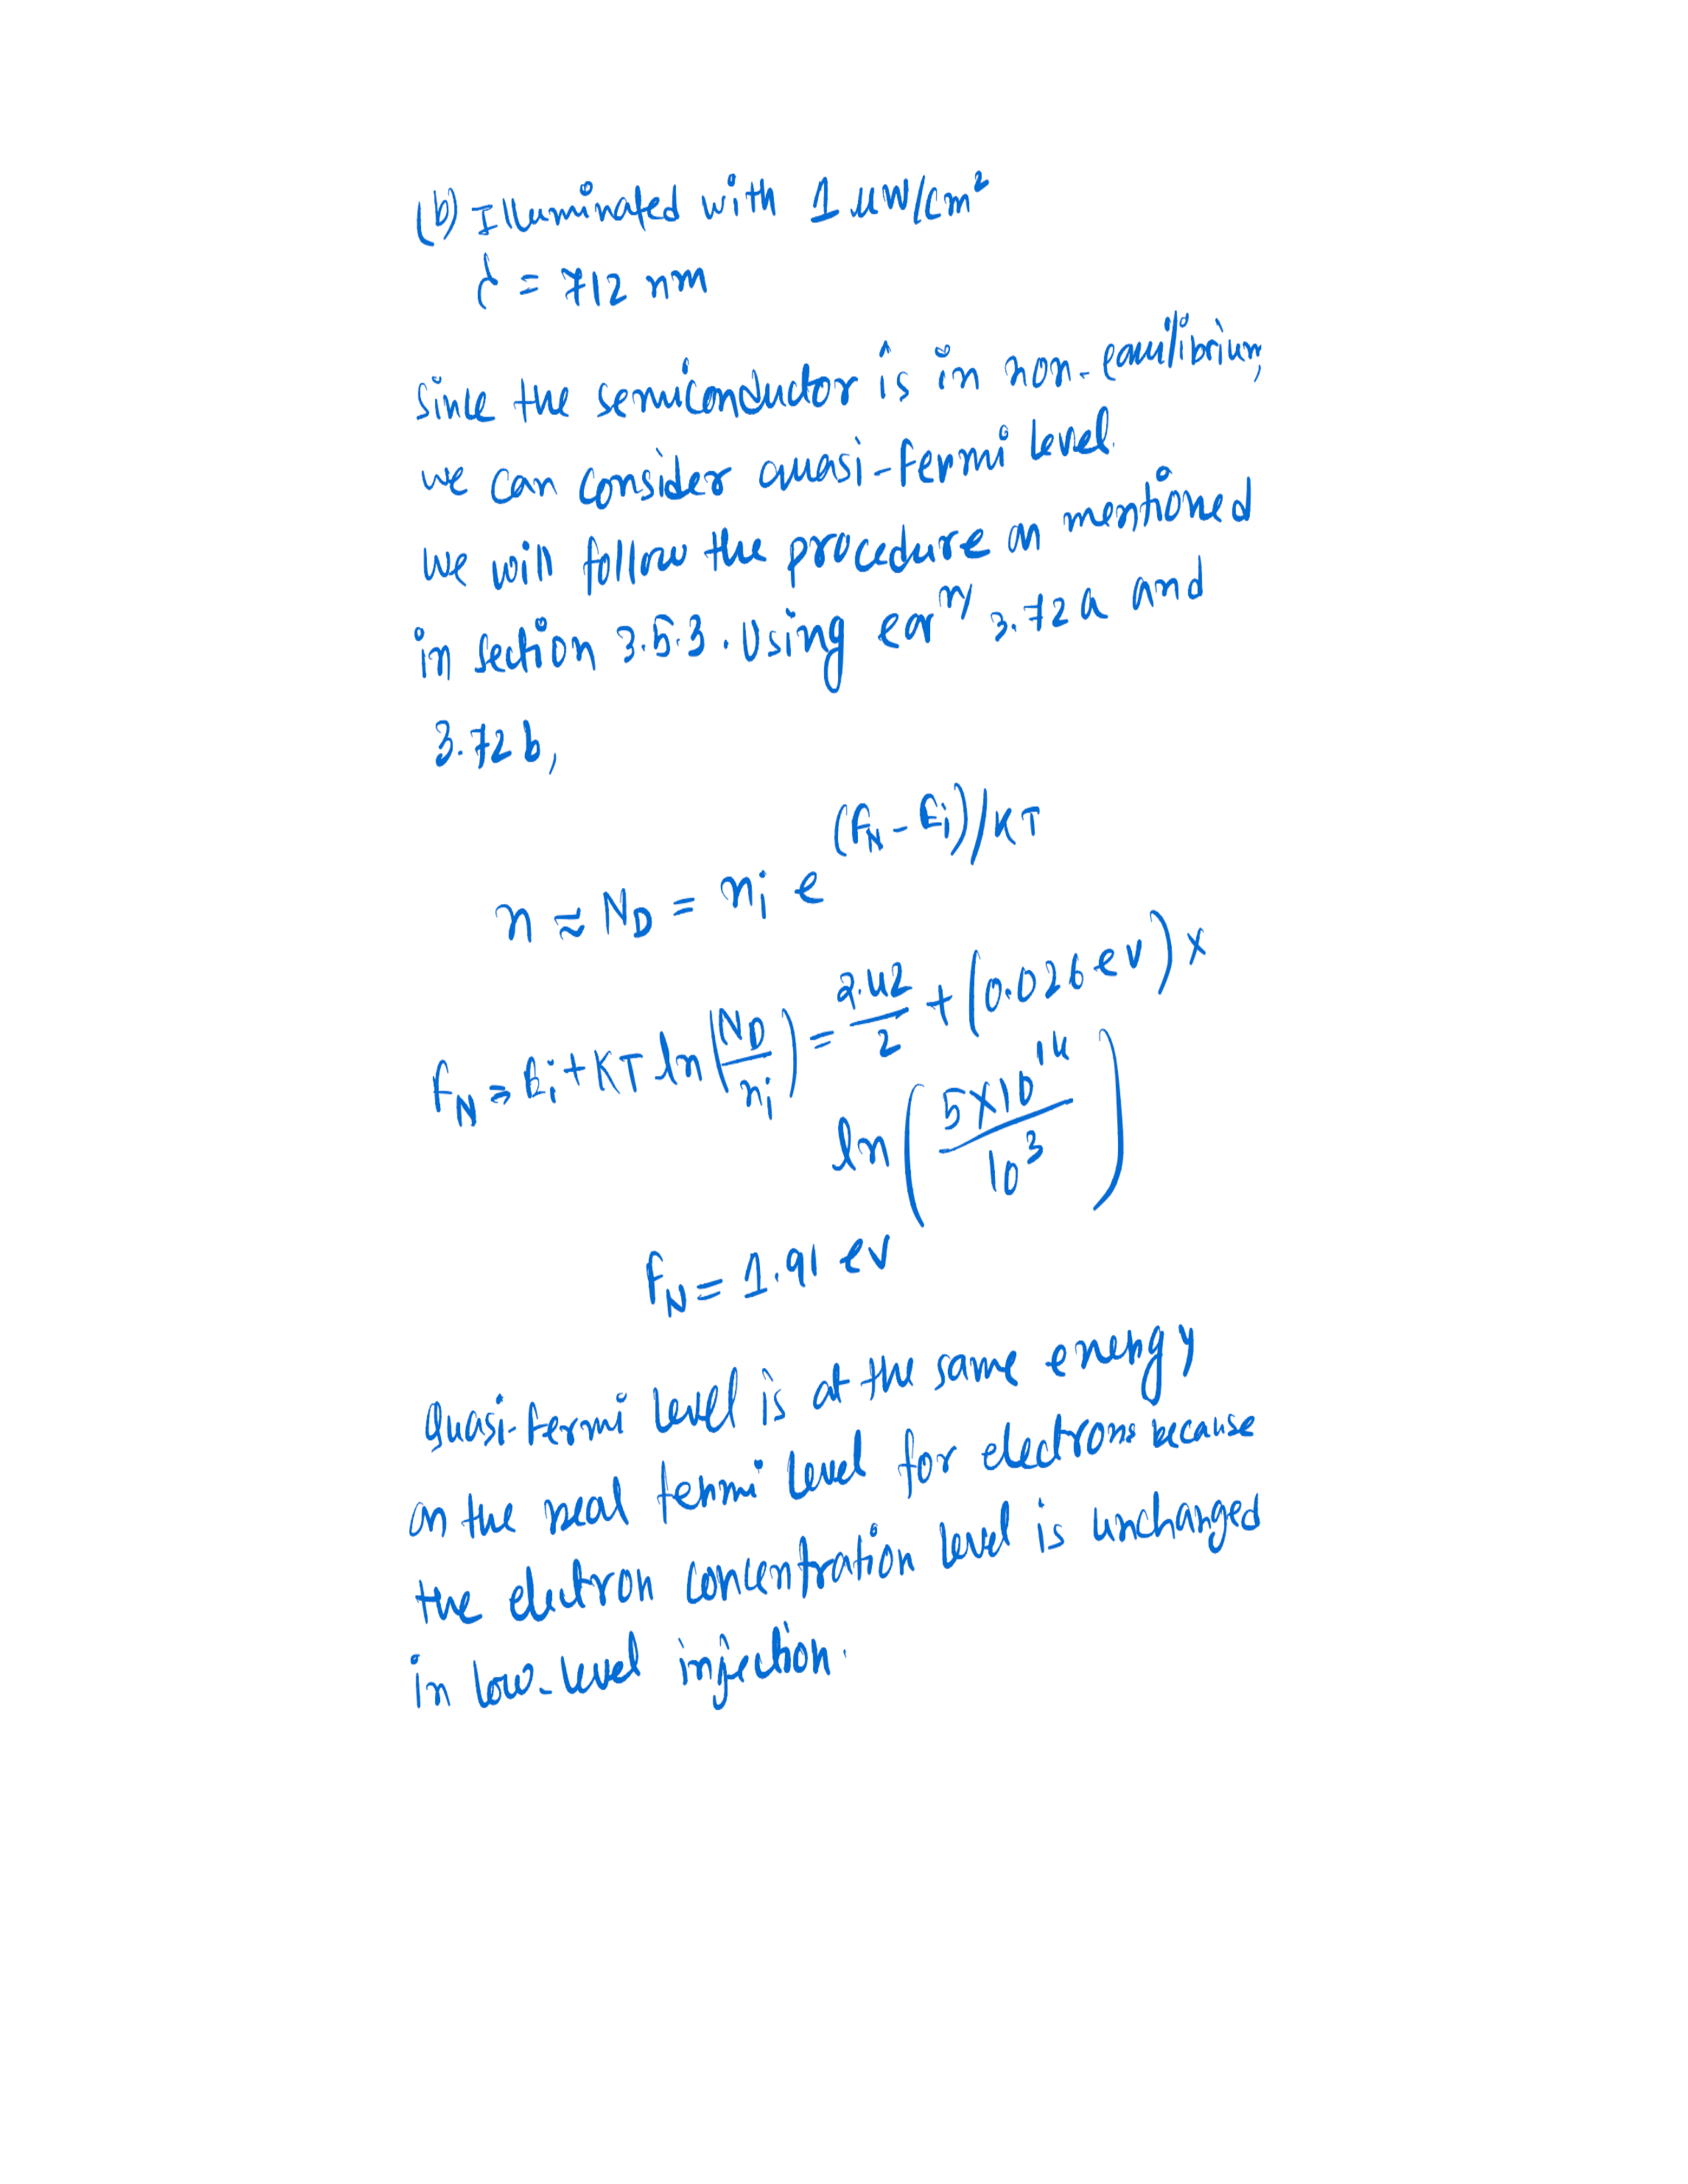 (b) Illuminated with 1 μW/cm²
λ = 712 nm
Since the semiconductor is in non-equilibrium,
we can consider quasi-fermi level.
we will follow the procedure as mentioned
in section 3.5.3. Using eqⁿ 3.72a and
3.72b,
n ≈ N_D = n_i e^{(F_N - E_i)/KT}
F_N = E_i + KT ln(N_D/n_i) = 2.42/2 + (0.026 ev) ×
ln(5×10^14/10^3)
F_N = 1.91 ev
Quasi-fermi level is at the same energy
as the real fermi level for electrons because
the electron concentration level is unchanged
in low-level injection.